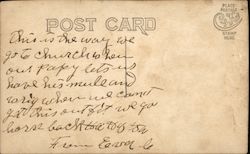 POST CARD
PLACE
POSTAGE
STAMP
HERE
This is the way we
go to church when
our papy lets us
have his mule and
when we cannot
get this outfit we go
horse back
From